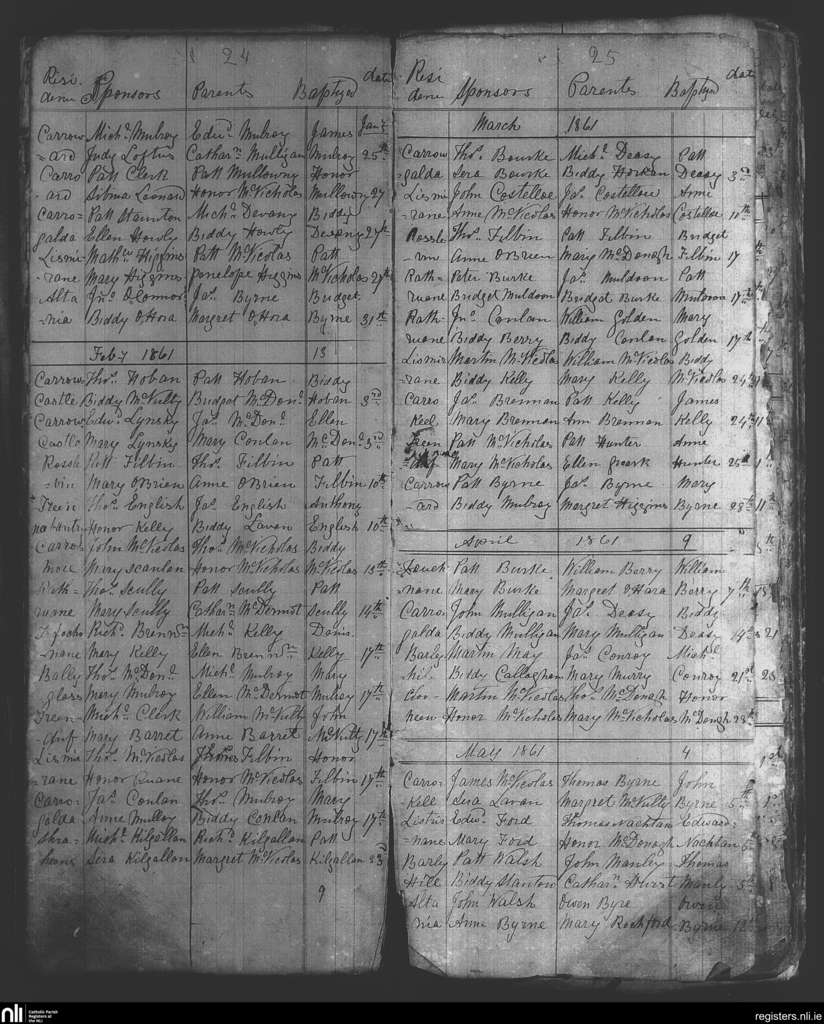 24
Resi dence Sponsors Parents Baptyzed date
Carrow Mich.l Mulroy Edw.d Mulroy James Jan.y
=ard Judy Loftus Cathar.n Mulligan Mulroy 25th
Carro Patt Clerk Patt Mullowny Honor
ard Sibina Leonard Honor McNicholas Mullowny 27
Carro= Patt Staunton Mich.l Devany Biddy
galda Ellen Howly Biddy Howly Devany 27th
Lismi Math.w Higgins Patt McNicolas Patt
rane Mary Higgins Penelope Higgins McNicholas 27th
Alta Jno. O Connor Jas. Byrne Bridget
=nia Biddy O,Hora Margret O,Hora Byrne 31st
Feb-y 1861 13
Carrow Tho.s Hoban Patt Hoban Biddy
Castle Biddy McNulty Bridget McDon.o Hoban 3rd
Carrow Edw.d Lynsky Ja.s McDon.o Ellen
Castle Mary Lynsky Mary Conlan McDon.o 3rd
Rossle Patt Filbin Tho.s Filbin Patt
=vin Mary O'Brien Anne O'Brien Filbin 10th
Tho.s English Ja.s English Anthony
Honor Kelly Biddy Lavan English 10th
Carro= John McNicolas Tho.s McNicholas Biddy
more Mary Scanlan Honor McNicholas McNicolas 13th
Rath= Tho.s Scully Patt Scully Patt
ruane Mary Scully Cathar.n McDermot Scully 14th
Rich.d Brennan Mich.l Kelly Denis
=nane Mary Kelly Ellen Brennan Kelly 17th
Bally Tho.s McDon.o Mich.l Mulroy Mary
glass Mary Mulroy Ellen McDermot Mulroy 17th
Treen= Mich.l Clerk William McNulty John
Mary Barret Anne Barret McNulty 17th
Lismi Tho.s McNicolas Thomas Filbin Honor
=rane Honor Ruane Honor McNicolas Filbin 17th
Carro= Ja.s Conlan Tho.s Mulroy Mary
galda Anne Mulloy Biddy Conlan Mulroy 17th
Mich.l Kilgallan Rich.d Kilgallan Patt
Sera Kilgallan Margret McNicolas Kilgallan 23rd
9
25
Resi dence Sponsors Parents Baptyzed date
March 1861
Carrow Tho.s Bourke Mich.l Deasy Patt
galda Sera Bourke Biddy Horkan Deasy 3rd
Lismi John Costelloe Ja.s Costelloe Anne
=rane Anne McNicolas Honor McNicholas Costelloe 10th
Rossle Tho.s Filbin Patt Filbin Bridget
=vin Anne O Brien Mary McDonogh Filbin 17th
Rath= Peter Burke Ja.s Muldoon Patt
ruane Bridget Muldoon Bridget Burke Muldoon 17th
Rath- Jn.o Conlan William Golden Mary
ruane Biddy Berry Biddy Conlan Golden 17th
Lismi Martin McNicolas William McNicolas Biddy
=rane Biddy Kelly Mary Kelly McNicolas 24th
Carro Ja.s Brennan Patt Kelly James
Keel Mary Brennan Ann Brennan Kelly 24th
Treen Patt McNicholas Patt Hunter Anne
Mary McNicholas Ellen Hunter 25th
Carrow Patt Byrne Ja.s Byrne Mary
=ard Biddy Mulroy Margret Higgins Byrne 28th
April 1861 9
Patt Burke William Berry William
nane Mary Burke Margret O Hara Berry 7th
Carro= John Mulligan Ja.s Deasy Biddy
galda Biddy Mulligan Mary Mulligan Deasy 14th
Barly Martin May Ja.s Conroy Mich.l
hill Biddy Callaghan Mary Murry Conroy 21st
Martin McNicolas Tho.s McDonogh Honor
Honor McNicholas Mary McNicholas McDonogh 28th
May 1861 4
Carro= James McNicolas Thomas Byrne John
=Kell Sera Lavan Margret McNulty Byrne 5th
Edw.d Ford Thomas Nachtan Edward
=nane Mary Ford Honor McDonogh Nachtan
Barly Patt Walsh John Manley Thomas
Hill Biddy Stanton Cathar.n Manly 5th
Alta John Walsh Owen Byre Owen
nia Anne Byrne Mary Rochford Byrne 12
nli
Catholic Parish
Registers at
the NLI
registers.nli.ie